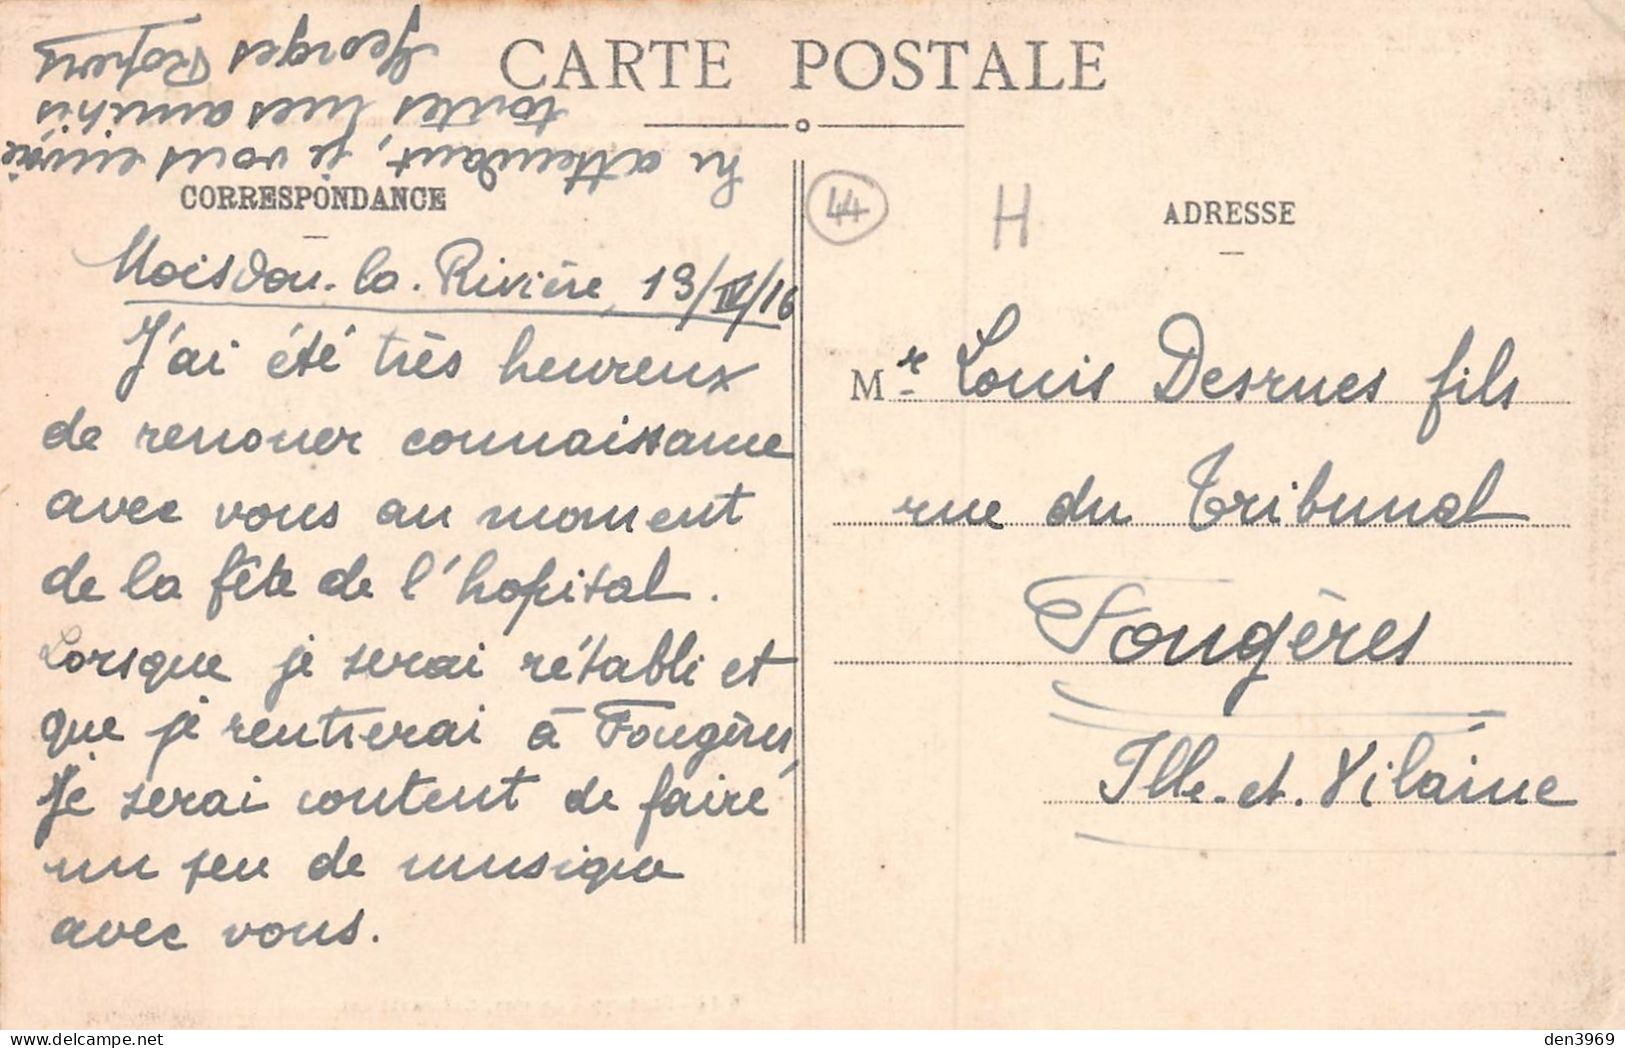 CARTE POSTALE
CORRESPONDANCE
Moisdon-la-Rivière, 13/IV/16
J'ai été très heureux
de renouer connaissance
avec vous au moment
de la fête de l'hopital.
Lorsque je serai rétabli et
que je rentrerai à Fougères,
je serai content de faire
un peu de musique
avec vous.
En attendant, je vous envoie
toutes mes amitiés
Georges
44
H
ADRESSE
Mr Louis Desrues fils
rue du Tribunal
Fougères
Ille-et-Vilaine
den3969